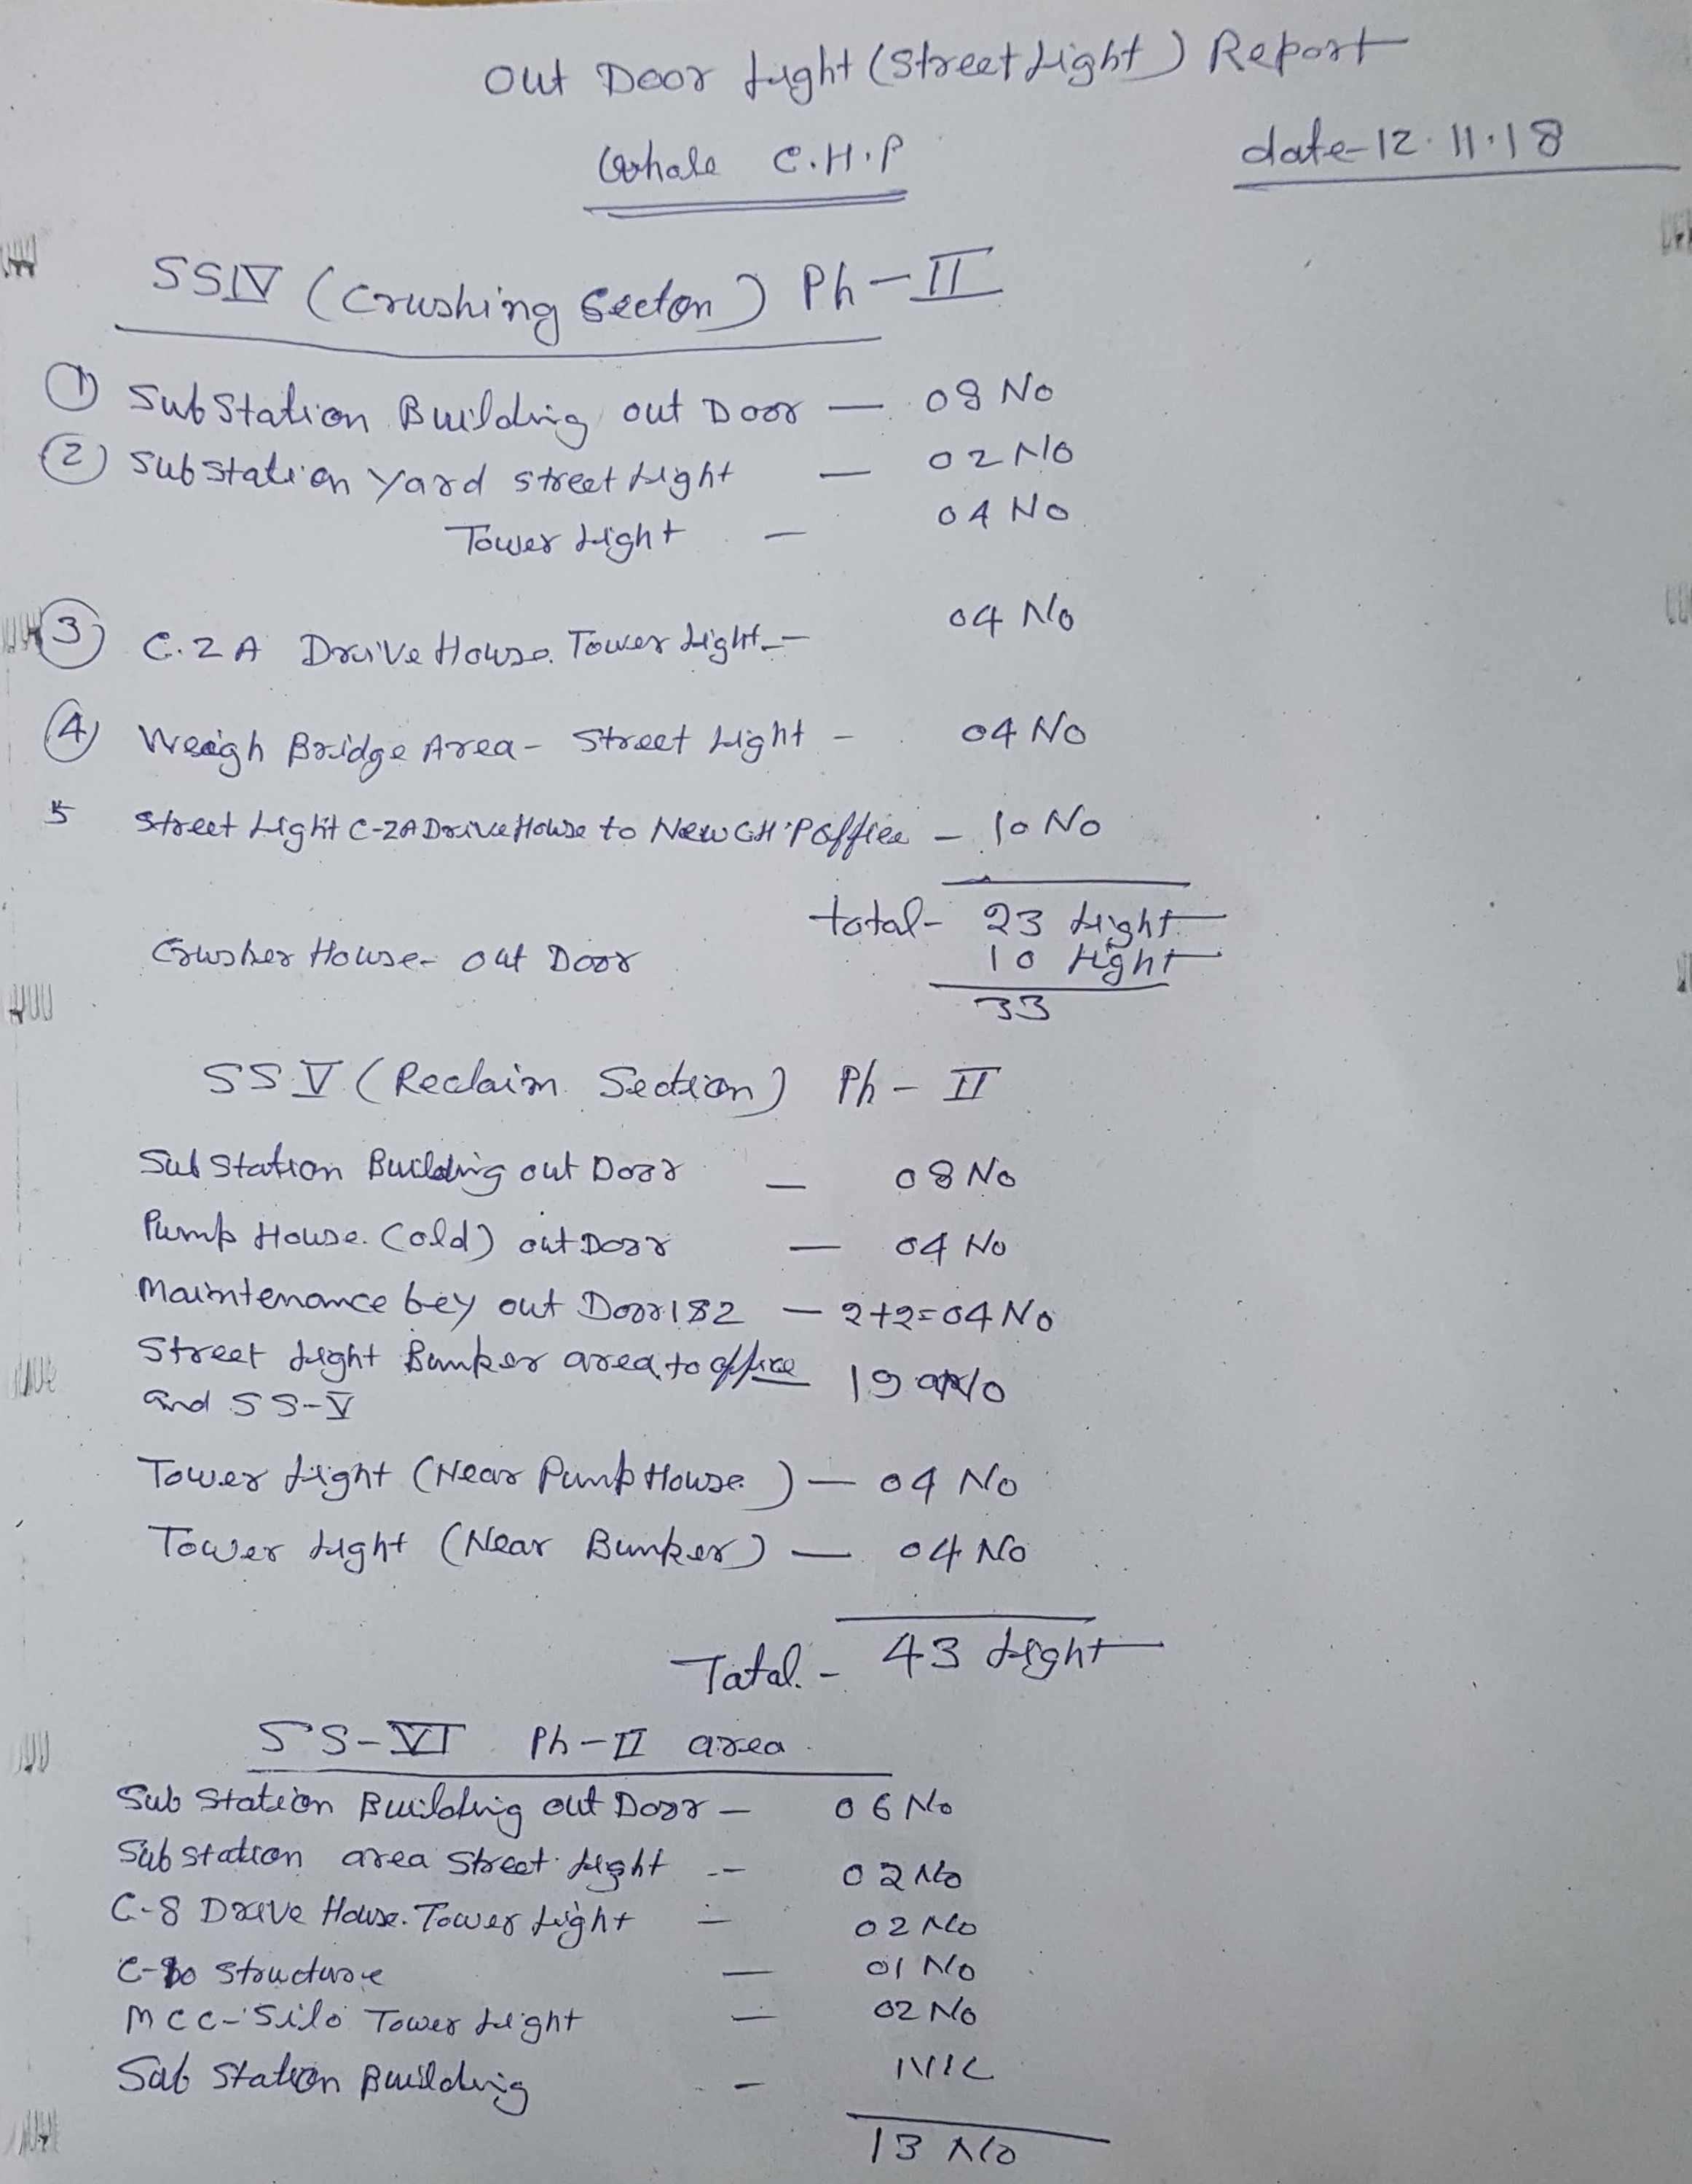 Out Door Light (Street Light) Report
Whole C.H.P
date-12.11.18
SSIV (Crushing Secton) Ph-II
① SubStation Building out Door — 08 No
② Substation Yard Street Light — 02 No
Tower Light — 04 No
③ C.2A Drive House Tower Light — 04 No
④ Weigh Bridge Area - Street Light - 04 No
5 Street Light C-2A Drive House to New CH.P office - 10 No
total- 23 Light
Crusher House- out Door 10 Light
33
SS V (Reclaim Section) Ph-II
Sub Station Building out Door — 08 No
Pump House (old) out Door — 04 No
Maintenance bey out Door 1&2 — 2+2=04 No
Street Light Bunker area to office 19 No
and SS-V
Tower Light (Near Pump House) — 04 No
Tower Light (Near Bunker) — 04 No
Total.- 43 Light
SS-VI Ph-II area
Sub Station Building out Door — 06 No
Sub station area Street Light — 02 No
C-8 Drive House. Tower Light — 02 No
C-10 Structure — 01 No
MCC-Silo Tower Light — 02 No
Sub Station Building - NIL
13 No